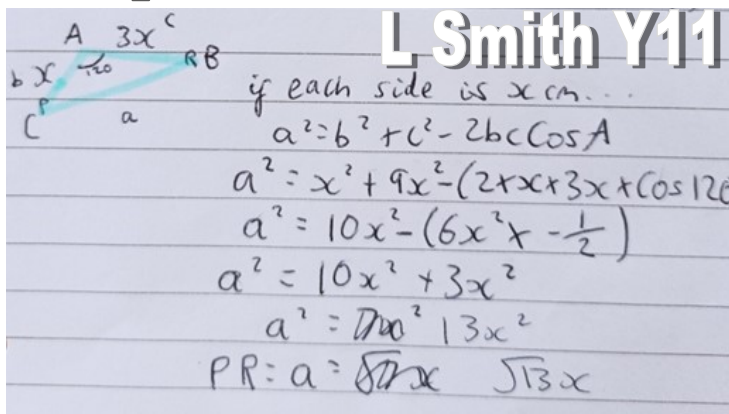 L Smith Y11
A 3x c
b x 120 R B
P
C a
if each side is x cm...
a² = b² + c² - 2bc Cos A
a² = x² + 9x² - (2 × x × 3x × Cos 120
a² = 10x² - (6x² × -1/2)
a² = 10x² + 3x²
a² = 13x²
PR = a = √13x